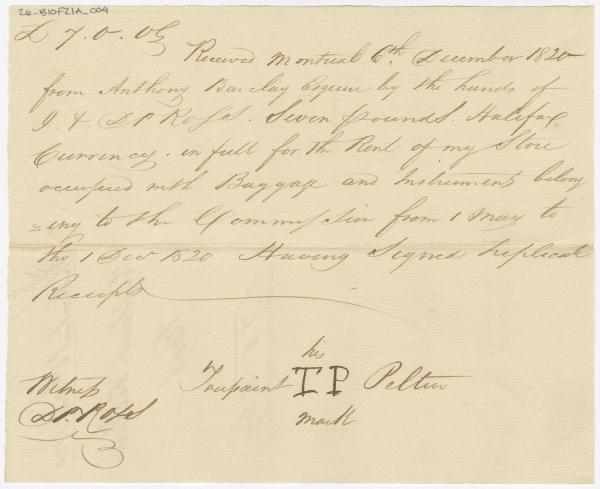 26-B10F21A_004
£ 7. 0. 0
Received Montreal 6th December 1820
from Anthony Barclay Esquire by the hands of
J. & D P Ross. Seven pounds. Halifax
Currency. in full for the Rent of my Store
occupied with Baggage and Instruments belong
=ing to the Commission from 1 May to
the 1 Decr 1820 Having Signed triplicate
Receipts
his
Witness Toussaint TP Peltier
D P. Ross mark